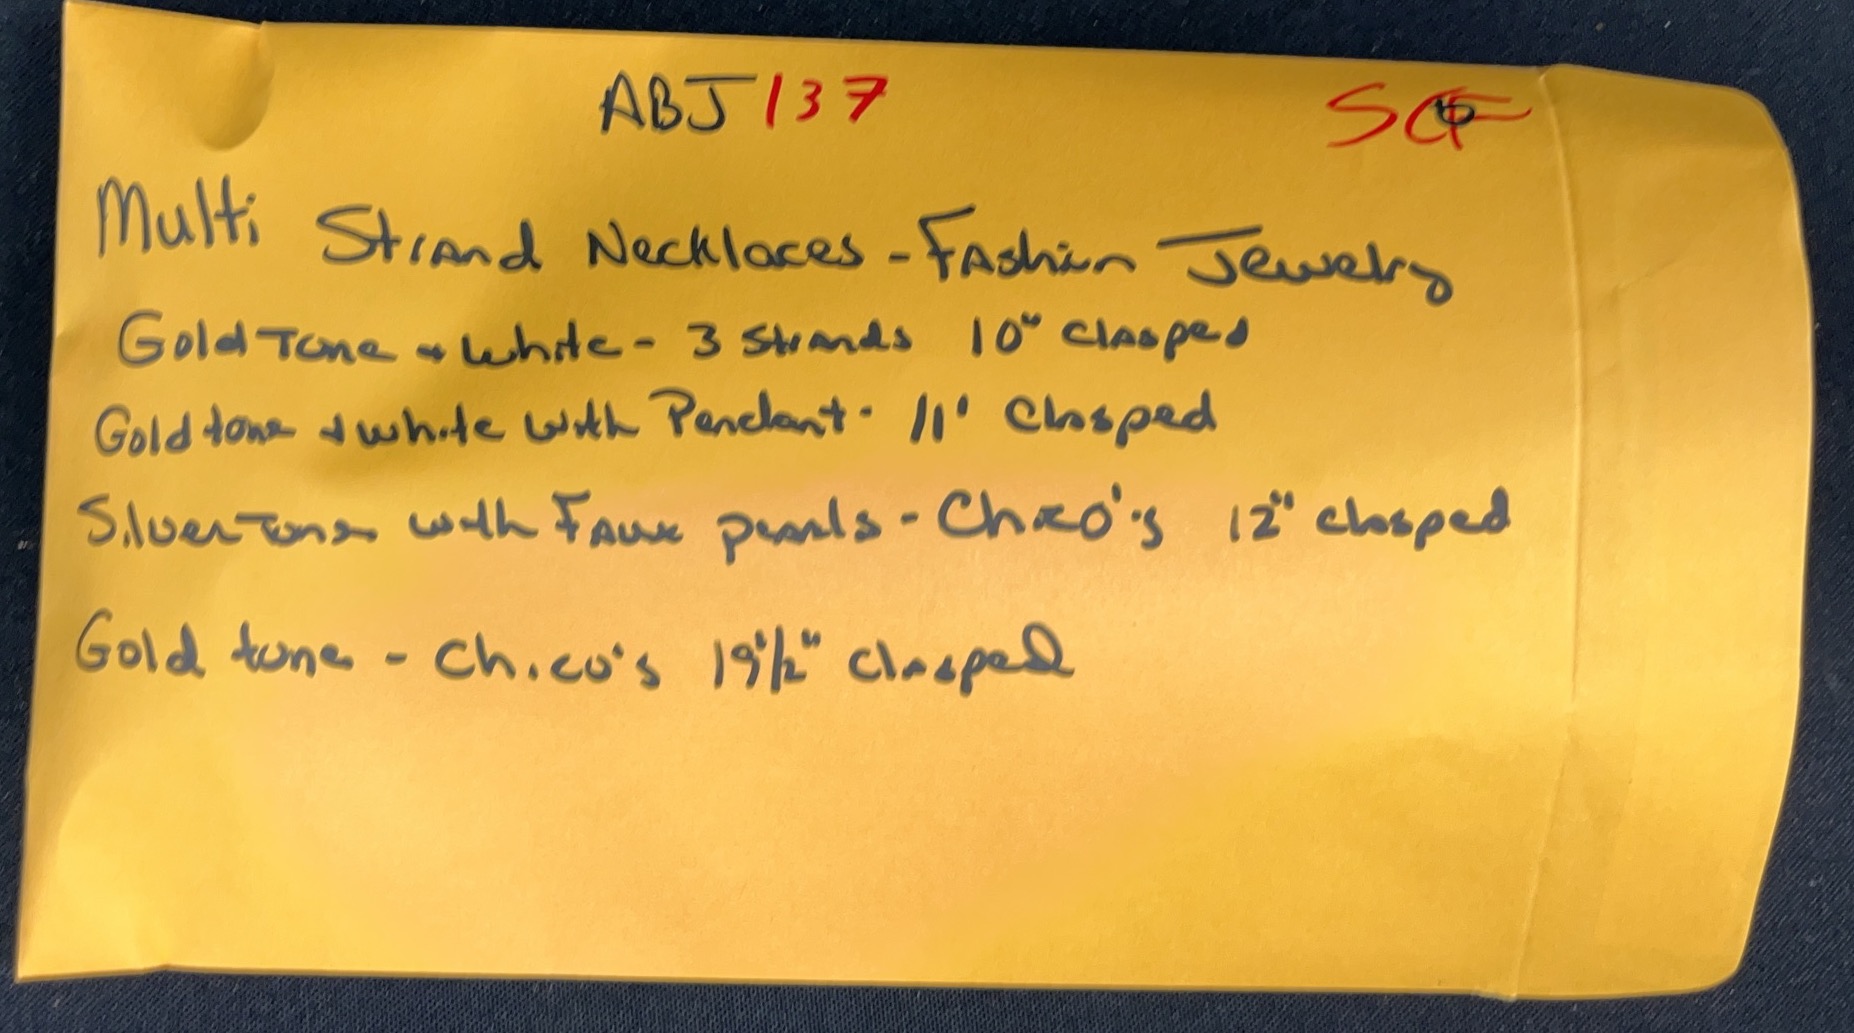 ABJ 137
Multi Strand Necklaces - Fashion Jewelry
Gold Tone + White - 3 Strands 10" Clasped
Gold tone + white with Pendant - 11' Clasped
Silver Tone with Faux pearls - Chico's 12" clasped
Gold tone - Chico's 19 1/2" clasped